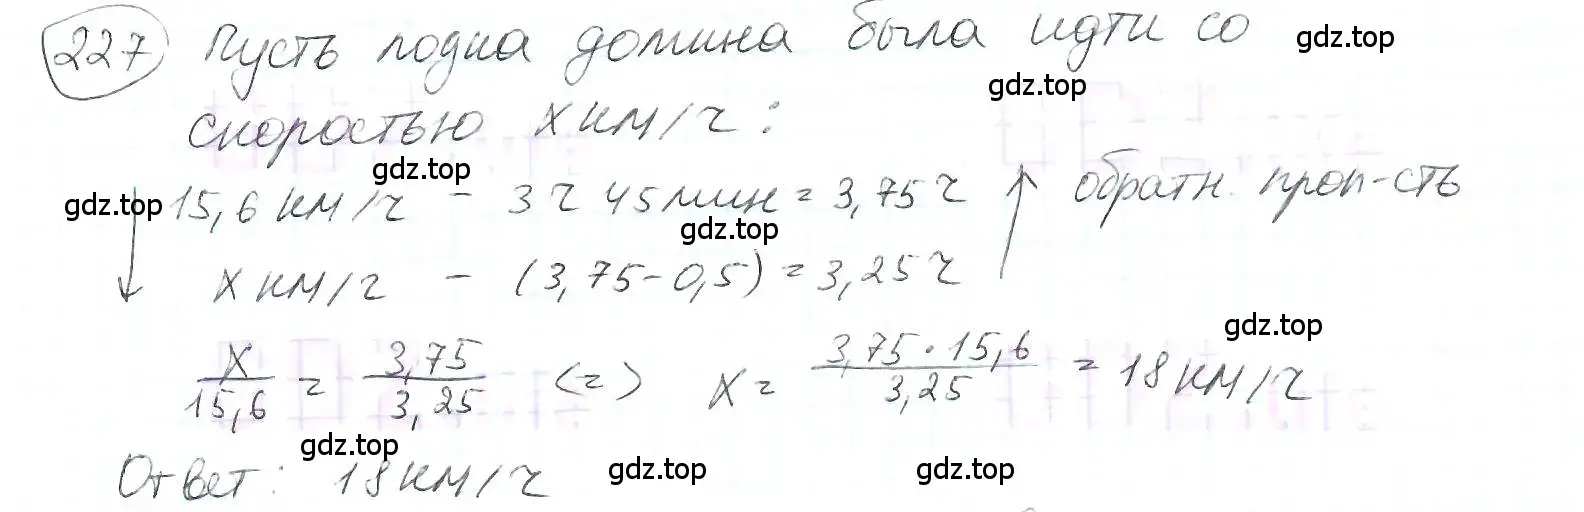 227 Пусть лодка должна была идти со gdz.top
gdz.top
скоростью x км/ч:
gdz.top
gdz.top 15,6 км/ч - 3 ч 45 мин = 3,75 ч обратн. проп-сть
gdz.top
x км/ч - (3,75-0,5) = 3,25 ч
gdz.top
x/15,6 = 3,75/3,25 (=) x = 3,75·15,6/3,25 = 18 км/ч
gdz.top
Ответ: 18 км/ч gdz.top gdz.top